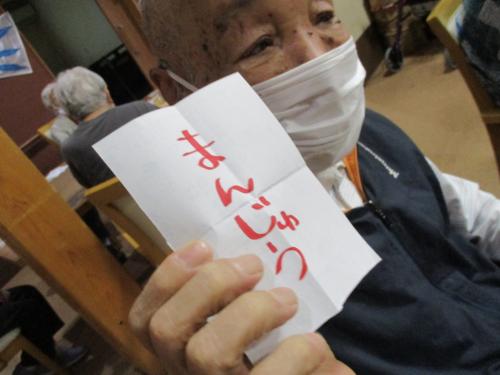 まんじゅう